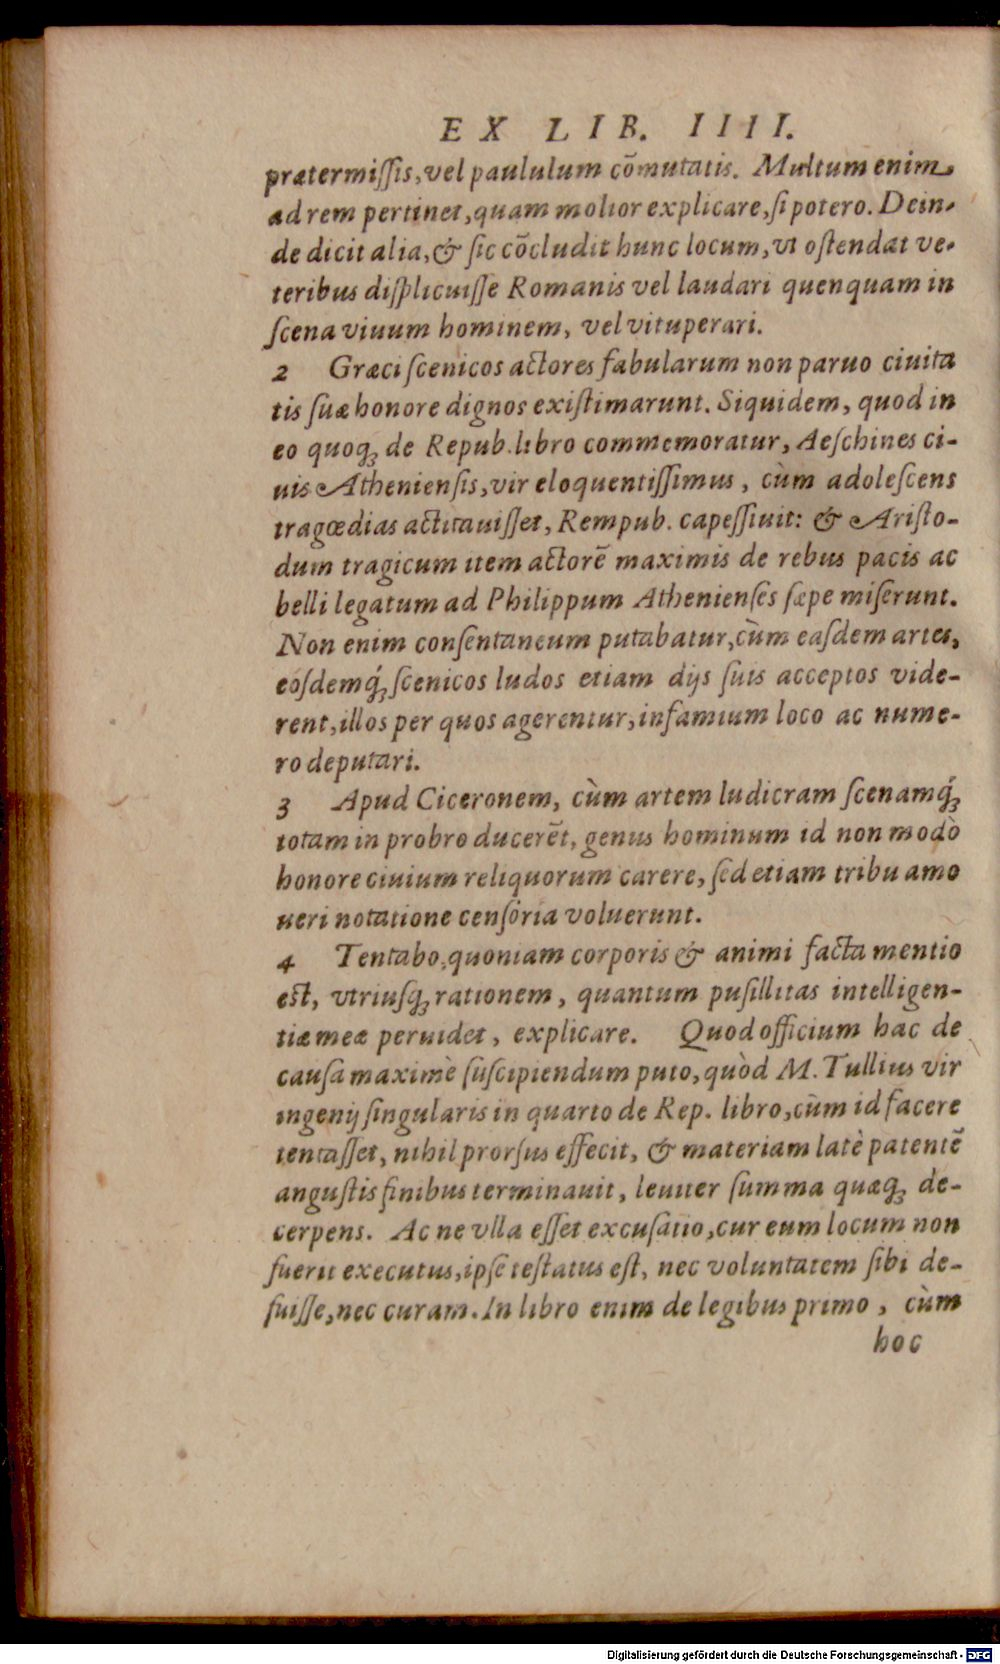 EX LIB. IIII.
prætermiſſis, vel paululum cōmutatis. Multum enim
ad rem pertinet, quam molior explicare, ſi potero. Dein-
de dicit alia, & ſic cōcludit hunc locum, vt oſtendat ve-
teribus diſplicuiſſe Romanis vel laudari quenquam in
ſcena viuum hominem, vel vituperari.
2 Græci ſcenicos actores fabularum non paruo ciuita
tis ſuæ honore dignos exiſtimarunt. Siquidem, quod in
eo quoq; de Repub. libro commemoratur, Aeſchines ci-
uis Athenienſis, vir eloquentiſſimus, cùm adoleſcens
tragœdias actitauiſſet, Rempub. capeſſiuit: & Ariſto-
dum tragicum item actorē maximis de rebus pacis ac
belli legatum ad Philippum Athenienſes ſæpe miſerunt.
Non enim conſentaneum putabatur, cùm eaſdem artes,
eoſdemq́; ſcenicos ludos etiam dijs ſuis acceptos vide-
rent, illos per quos agerentur, infamium loco ac nume-
ro deputari.
3 Apud Ciceronem, cùm artem ludicram ſcenamq́;
totam in probro ducerēt, genus hominum id non modò
honore ciuium reliquorum carere, ſed etiam tribu amo
ueri notatione cenſoria voluerunt.
4 Tentabo, quoniam corporis & animi facta mentio
eſt, vtriuſq; rationem, quantum puſillitas intelligen-
tiæ meæ peruidet, explicare. Quod officium hac de
cauſa maximè ſuſcipiendum puto, quòd M. Tullius vir
ingenij ſingularis in quarto de Rep. libro, cùm id facere
tentaſſet, nihil prorſus effecit, & materiam latè patentē
anguſtis finibus terminauit, leuiter ſumma quæq; de-
cerpens. Ac ne vlla eſſet excuſatio, cur eum locum non
fuerit executus, ipſe teſtatus eſt, nec voluntatem ſibi de-
fuiſſe, nec curam. In libro enim de legibus primo, cùm
hoc
Digitalisierung gefördert durch die Deutsche Forschungsgemeinschaft - DFG